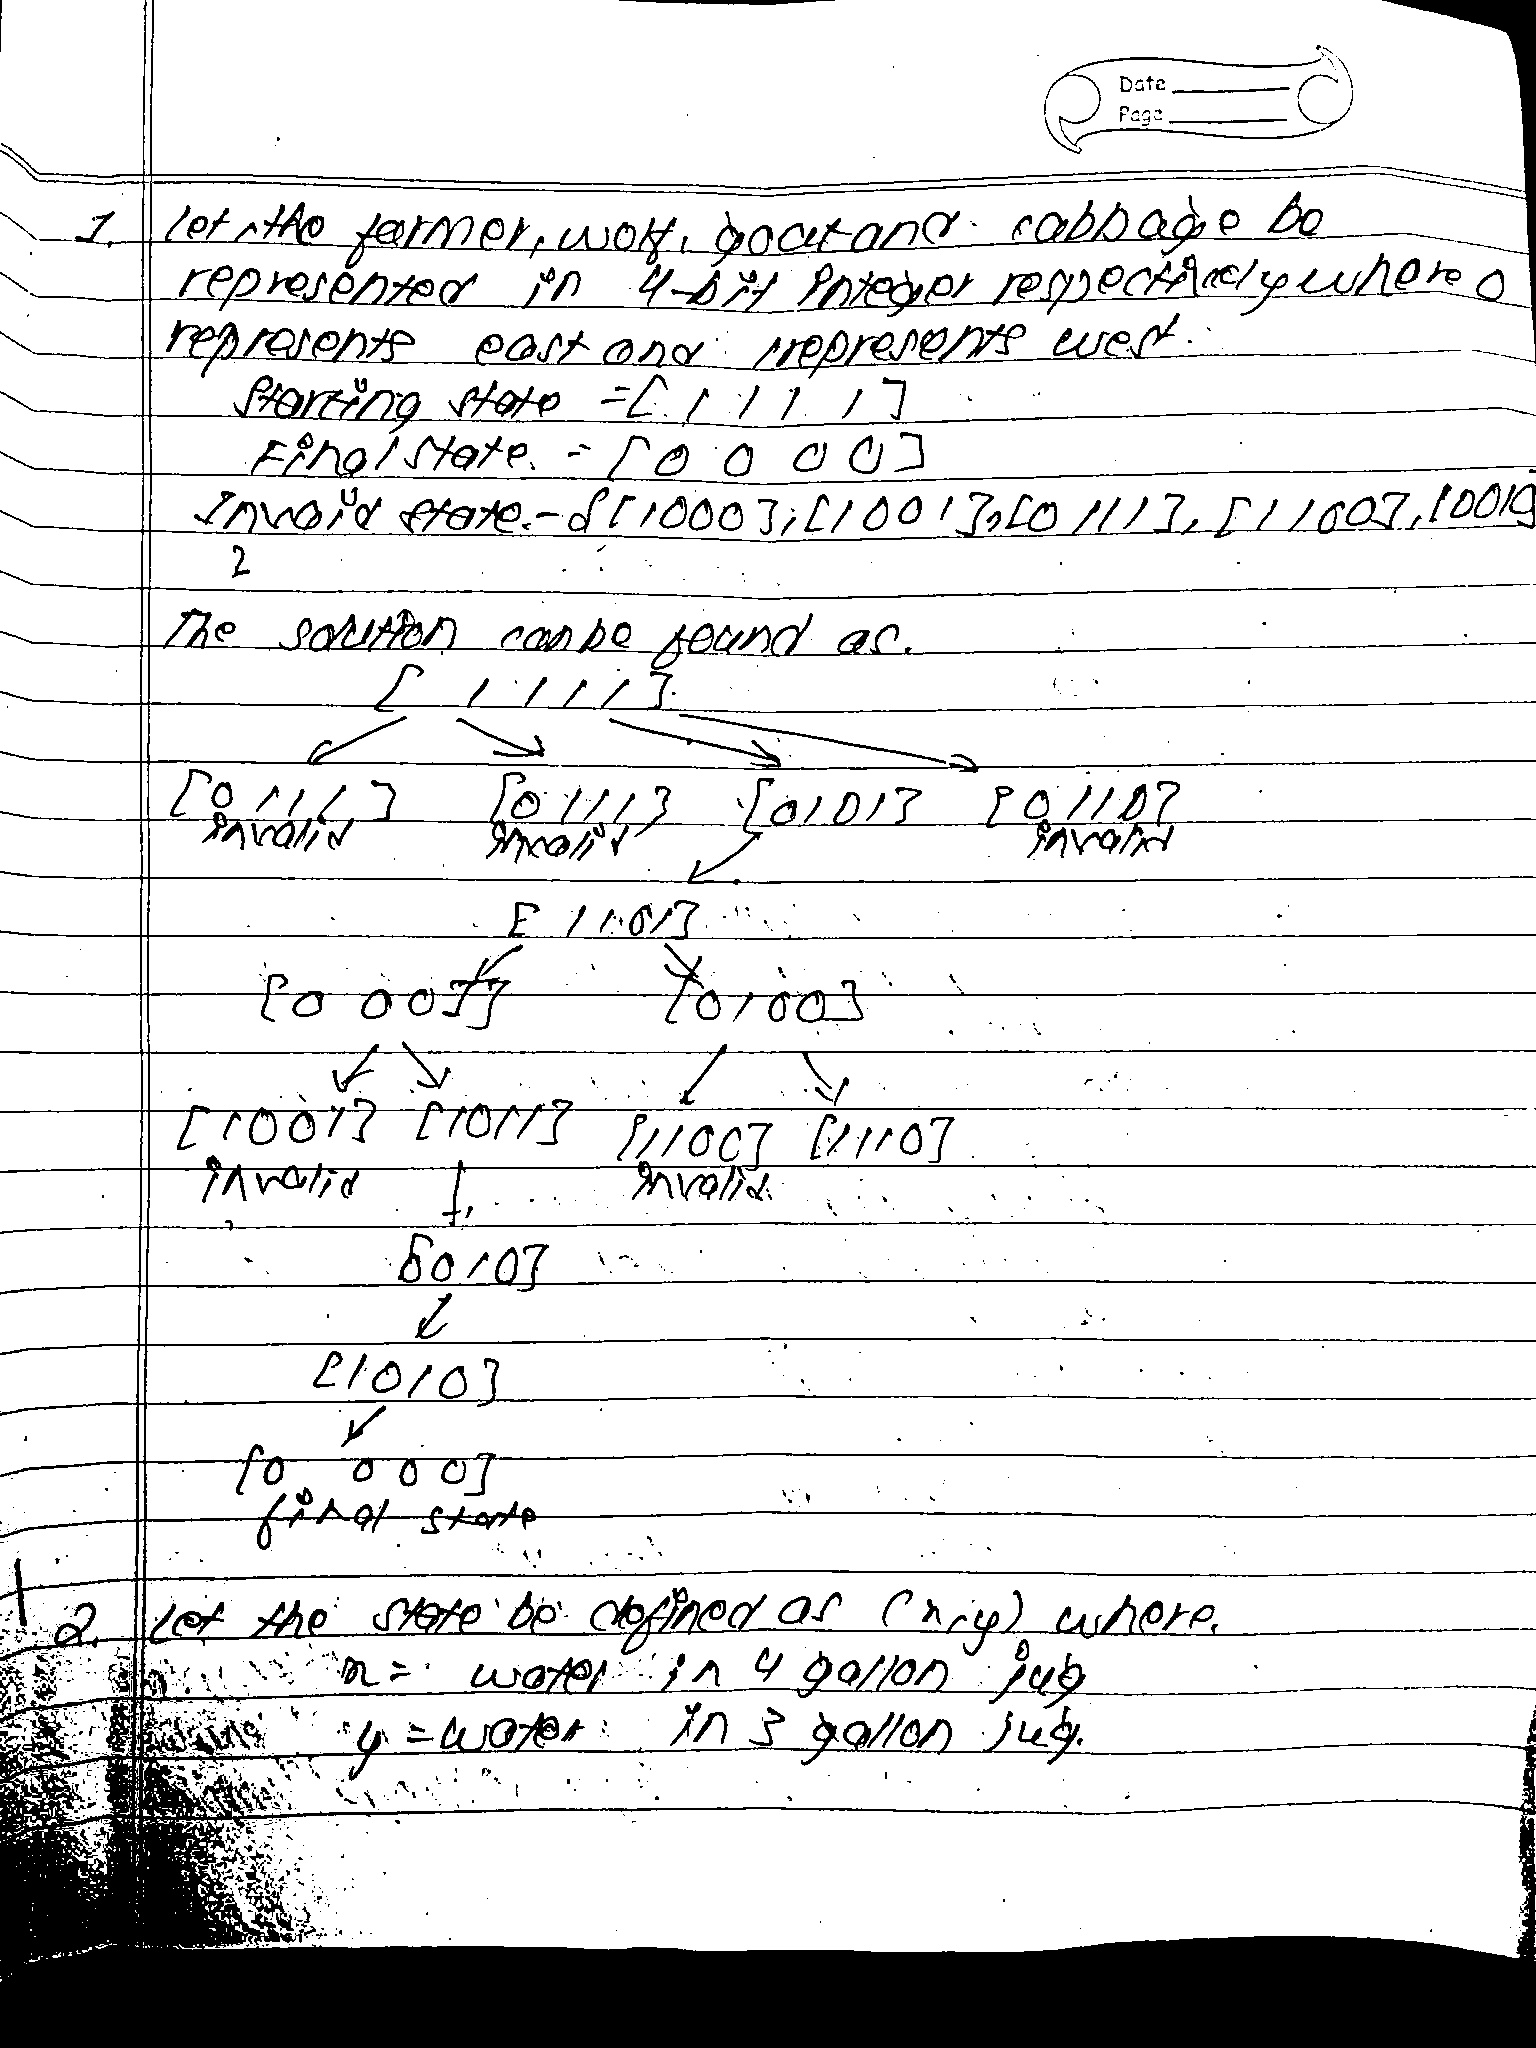 Date
Page
1. let the farmer, wolf, goat and cabbage be
represented in 4-bit integer respectively where 0
represents east and 1 represents west.
Starting state = [ 1 1 1 1 ]
Final state = [ 0 0 0 0 ]
Invalid state = { [1000], [1001], [0111], [1100], [0010
}
The solution can be found as.
[ 1 1 1 1 ]
[ 0 1 1 1 ] [0 1 1 1] [0101] [0110]
invalid invalid invalid
[ 1101 ]
[0 0 0 1] [0100]
[1001] [1011] [1100] [1110]
invalid invalid
[0010]
[1010]
[0 0 0 0]
final state
2. Let the state be defined as (x,y) where.
x = water in 4 gallon jug
y = water in 3 gallon jug.